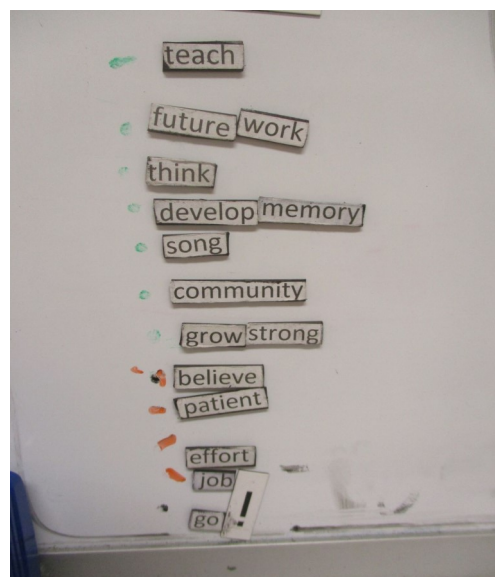 teach
future work
think
develop memory
song
community
grow strong
believe
patient
effort
job
go !